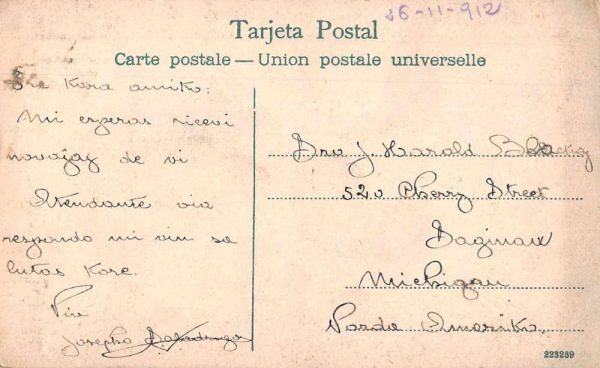 26-11-912
Tarjeta Postal
Carte postale — Union postale universelle
Tre Kara amiko:
Mi esperas ricevi
novajaj de vi
Atendante via
respondo mi vin sa
lutas Kore.
Via
Josepho
Dro J. Harold
520 Cherry Street
Saginaw
Michigan
Norda Ameriko
223239